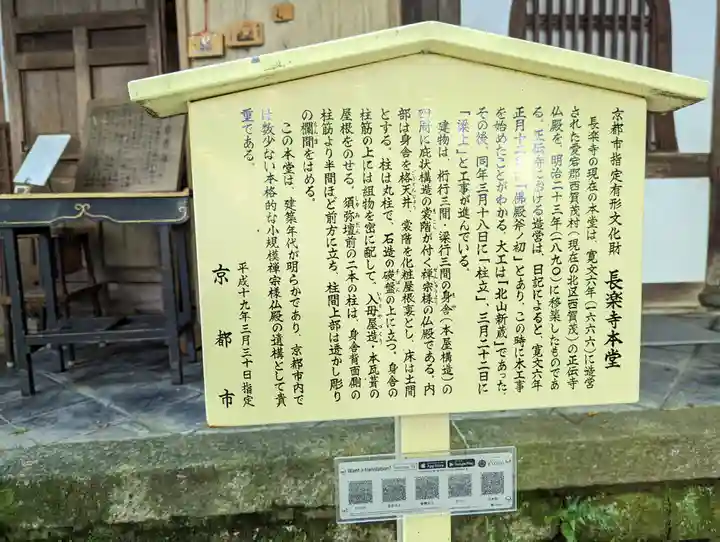 京都市指定有形文化財 長楽寺本堂
長楽寺の現在の本堂は、寛文六年(一六六六)に造営
された愛宕郡西賀茂村(現在の北区西賀茂)の正伝寺
仏殿を、明治二十三年(一八九〇)に移築したものであ
る。正伝寺における造営は、日記によると、寛文六年
正月十二日に「佛殿斧ノ初」とあり、この時に木工事
を始めたことがわかる。大工は「北山新蔵」であった。
その後、同年三月十八日に「柱立」、三月二十二日に
「梁上」と工事が進んでいる。
建物は、桁行三間・梁行三間の身舎(本屋構造)の
四周に庇状構造の裳階が付く禅宗様の仏殿である。内
部は身舎を格天井、裳階を化粧屋根裏とし、床は土間
とする。柱は丸柱で、石造の礎盤の上に立つ。身舎の
柱筋の上には組物を密に配して、入母屋造・本瓦葺の
屋根をのせる。須弥壇前の二本の柱は、身舎背面側の
柱筋より半間ほど前方に立ち、柱間上部は透かし彫り
の欄間をはめる。
この本堂は、建築年代が明らかであり、京都市内で
は数少ない本格的な小規模禅宗様仏殿の遺構として貴
重である。
平成十九年三月三十日指定
京都市
Want a translation?
App Store
Google Play